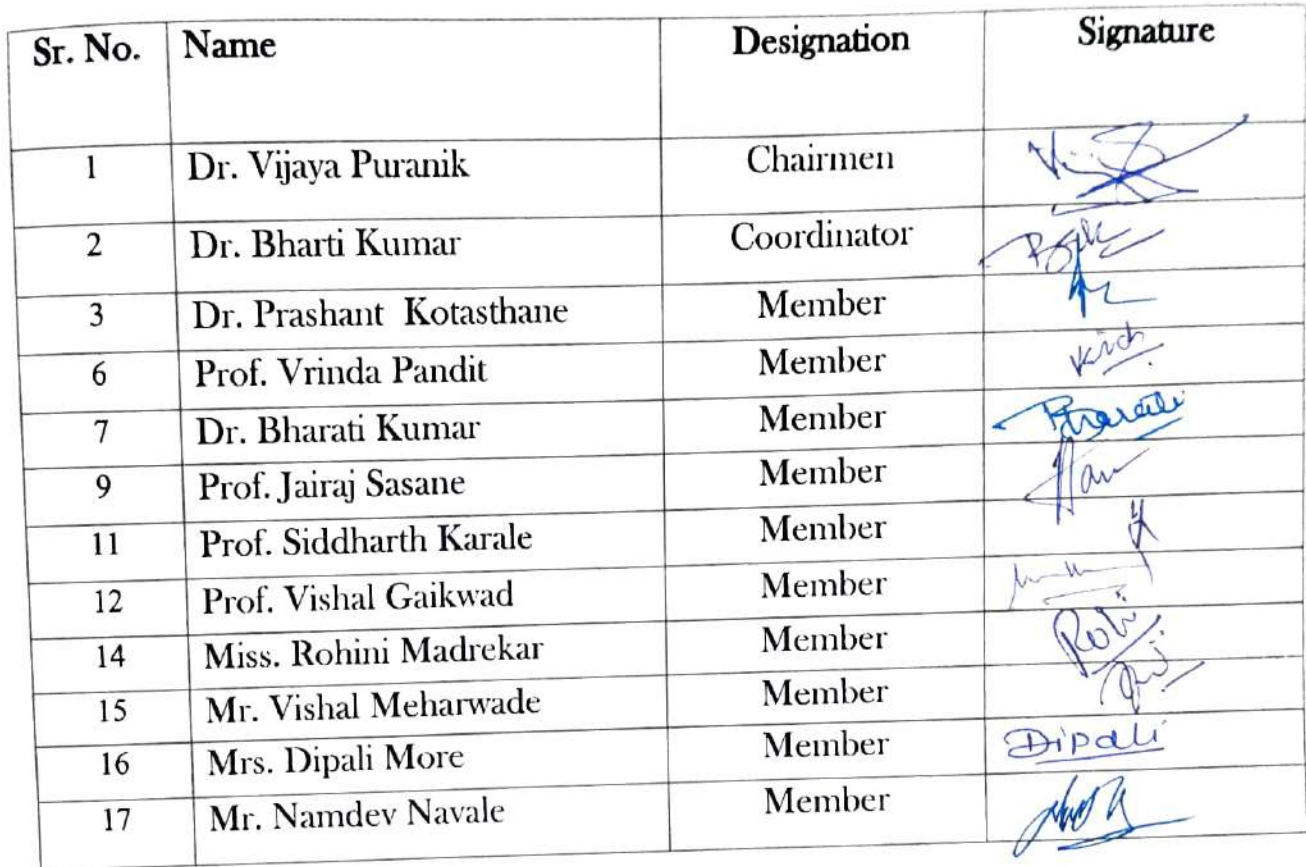 Sr. No. Name Designation Signature
1 Dr. Vijaya Puranik Chairmen
2 Dr. Bharti Kumar Coordinator
3 Dr. Prashant Kotasthane Member
6 Prof. Vrinda Pandit Member
7 Dr. Bharati Kumar Member Bharati
9 Prof. Jairaj Sasane Member
11 Prof. Siddharth Karale Member
12 Prof. Vishal Gaikwad Member
14 Miss. Rohini Madrekar Member
15 Mr. Vishal Meharwade Member
16 Mrs. Dipali More Member Dipali
17 Mr. Namdev Navale Member